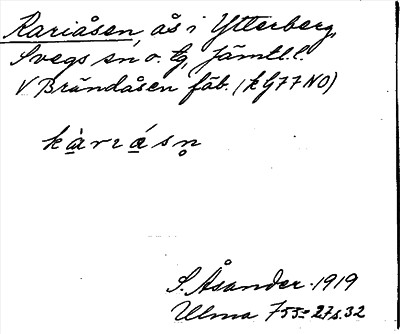 Kariåsen, ås i Ytterberg,
Svegs sn o. tg, Jämtl. l.
V Brändåsen fäb. (kG77NO)
kàrıásn̥
S. Åsander 1919
Ulma 755:27 s. 32